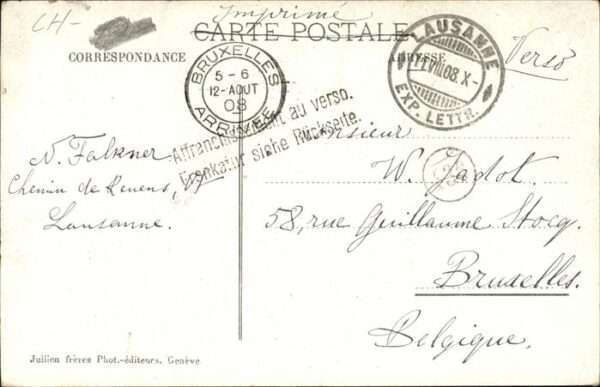 CH-
Imprimé
CARTE POSTALE
CORRESPONDANCE
ADRESSE
Verso
BRUXELLES
5-6
12-AOUT
08
ARRIVÉE
LAUSANNE
VIII.08.X-
EXP. LETTR.
Affranchissement au verso.
Frankatur siehe Rückseite.
N. Falkner
Chemin de Renens,
Lausanne.
Monsieur
W. Jadot
58, rue Guillaume Stocq.
Bruxelles.
Belgique.
Jullien frères Phot.-éditeurs, Genève